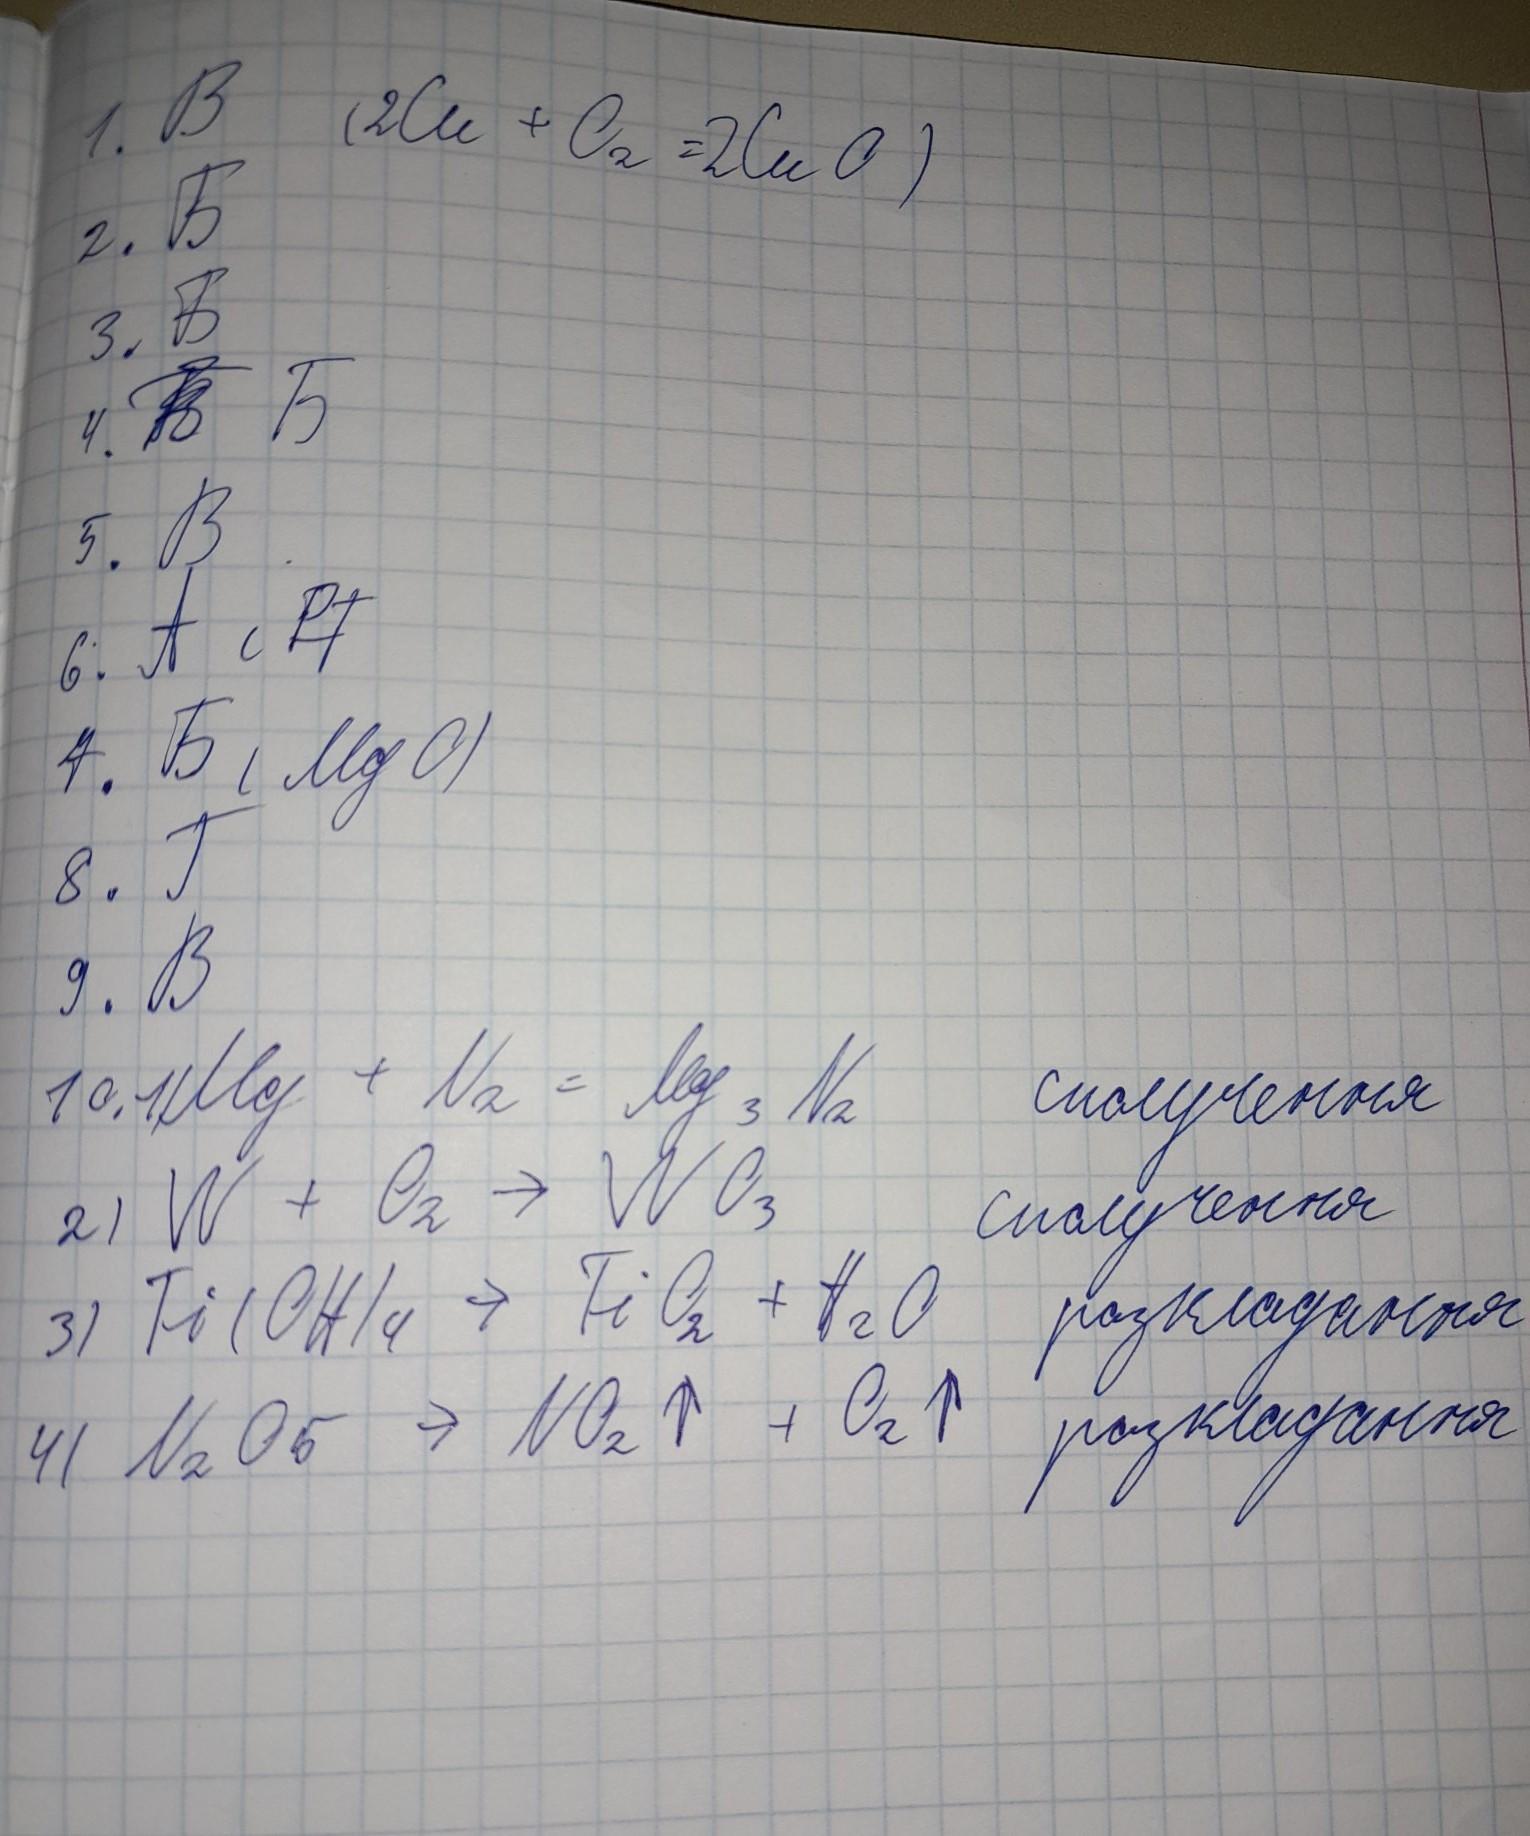 1. В (2Cu + O2 = 2CuO)
2. Б
3. Б
4. Б
5. В
6. А ( Pt
7. Б ( MgO)
8. Г
9. В
10. 1) Mg + N2 = Mg3N2 сполучення
2) W + O2 → WO3 сполучення
3) Ti(OH)4 → TiO2 + H2O розкладання
4) N2O5 → NO2↑ + O2↑ розкладання